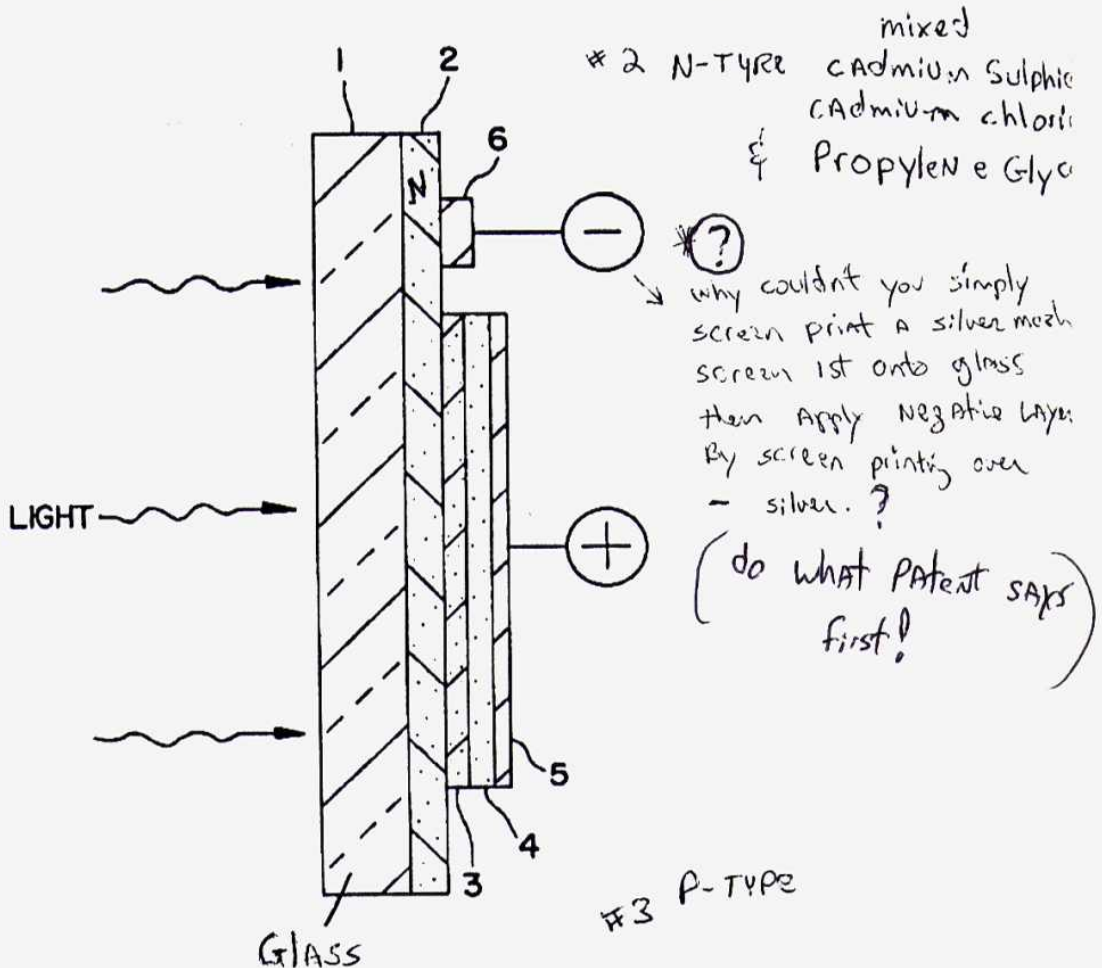 mixed
# 2 N-TYPE CAdmiUm Sulphic
CAdmiUm chlori
& PropyleN e Glyc
1 2
6
N
−
* ?
why couldn't you simply
screen print A silver mesh
screen 1st onto glass
then Apply NegAtive LAye
By screen printing over
− silver. ?
(do whAT PAteNT SAYS
first!)
LIGHT
+
5
4
3
#3 P-TYPE
GlASS